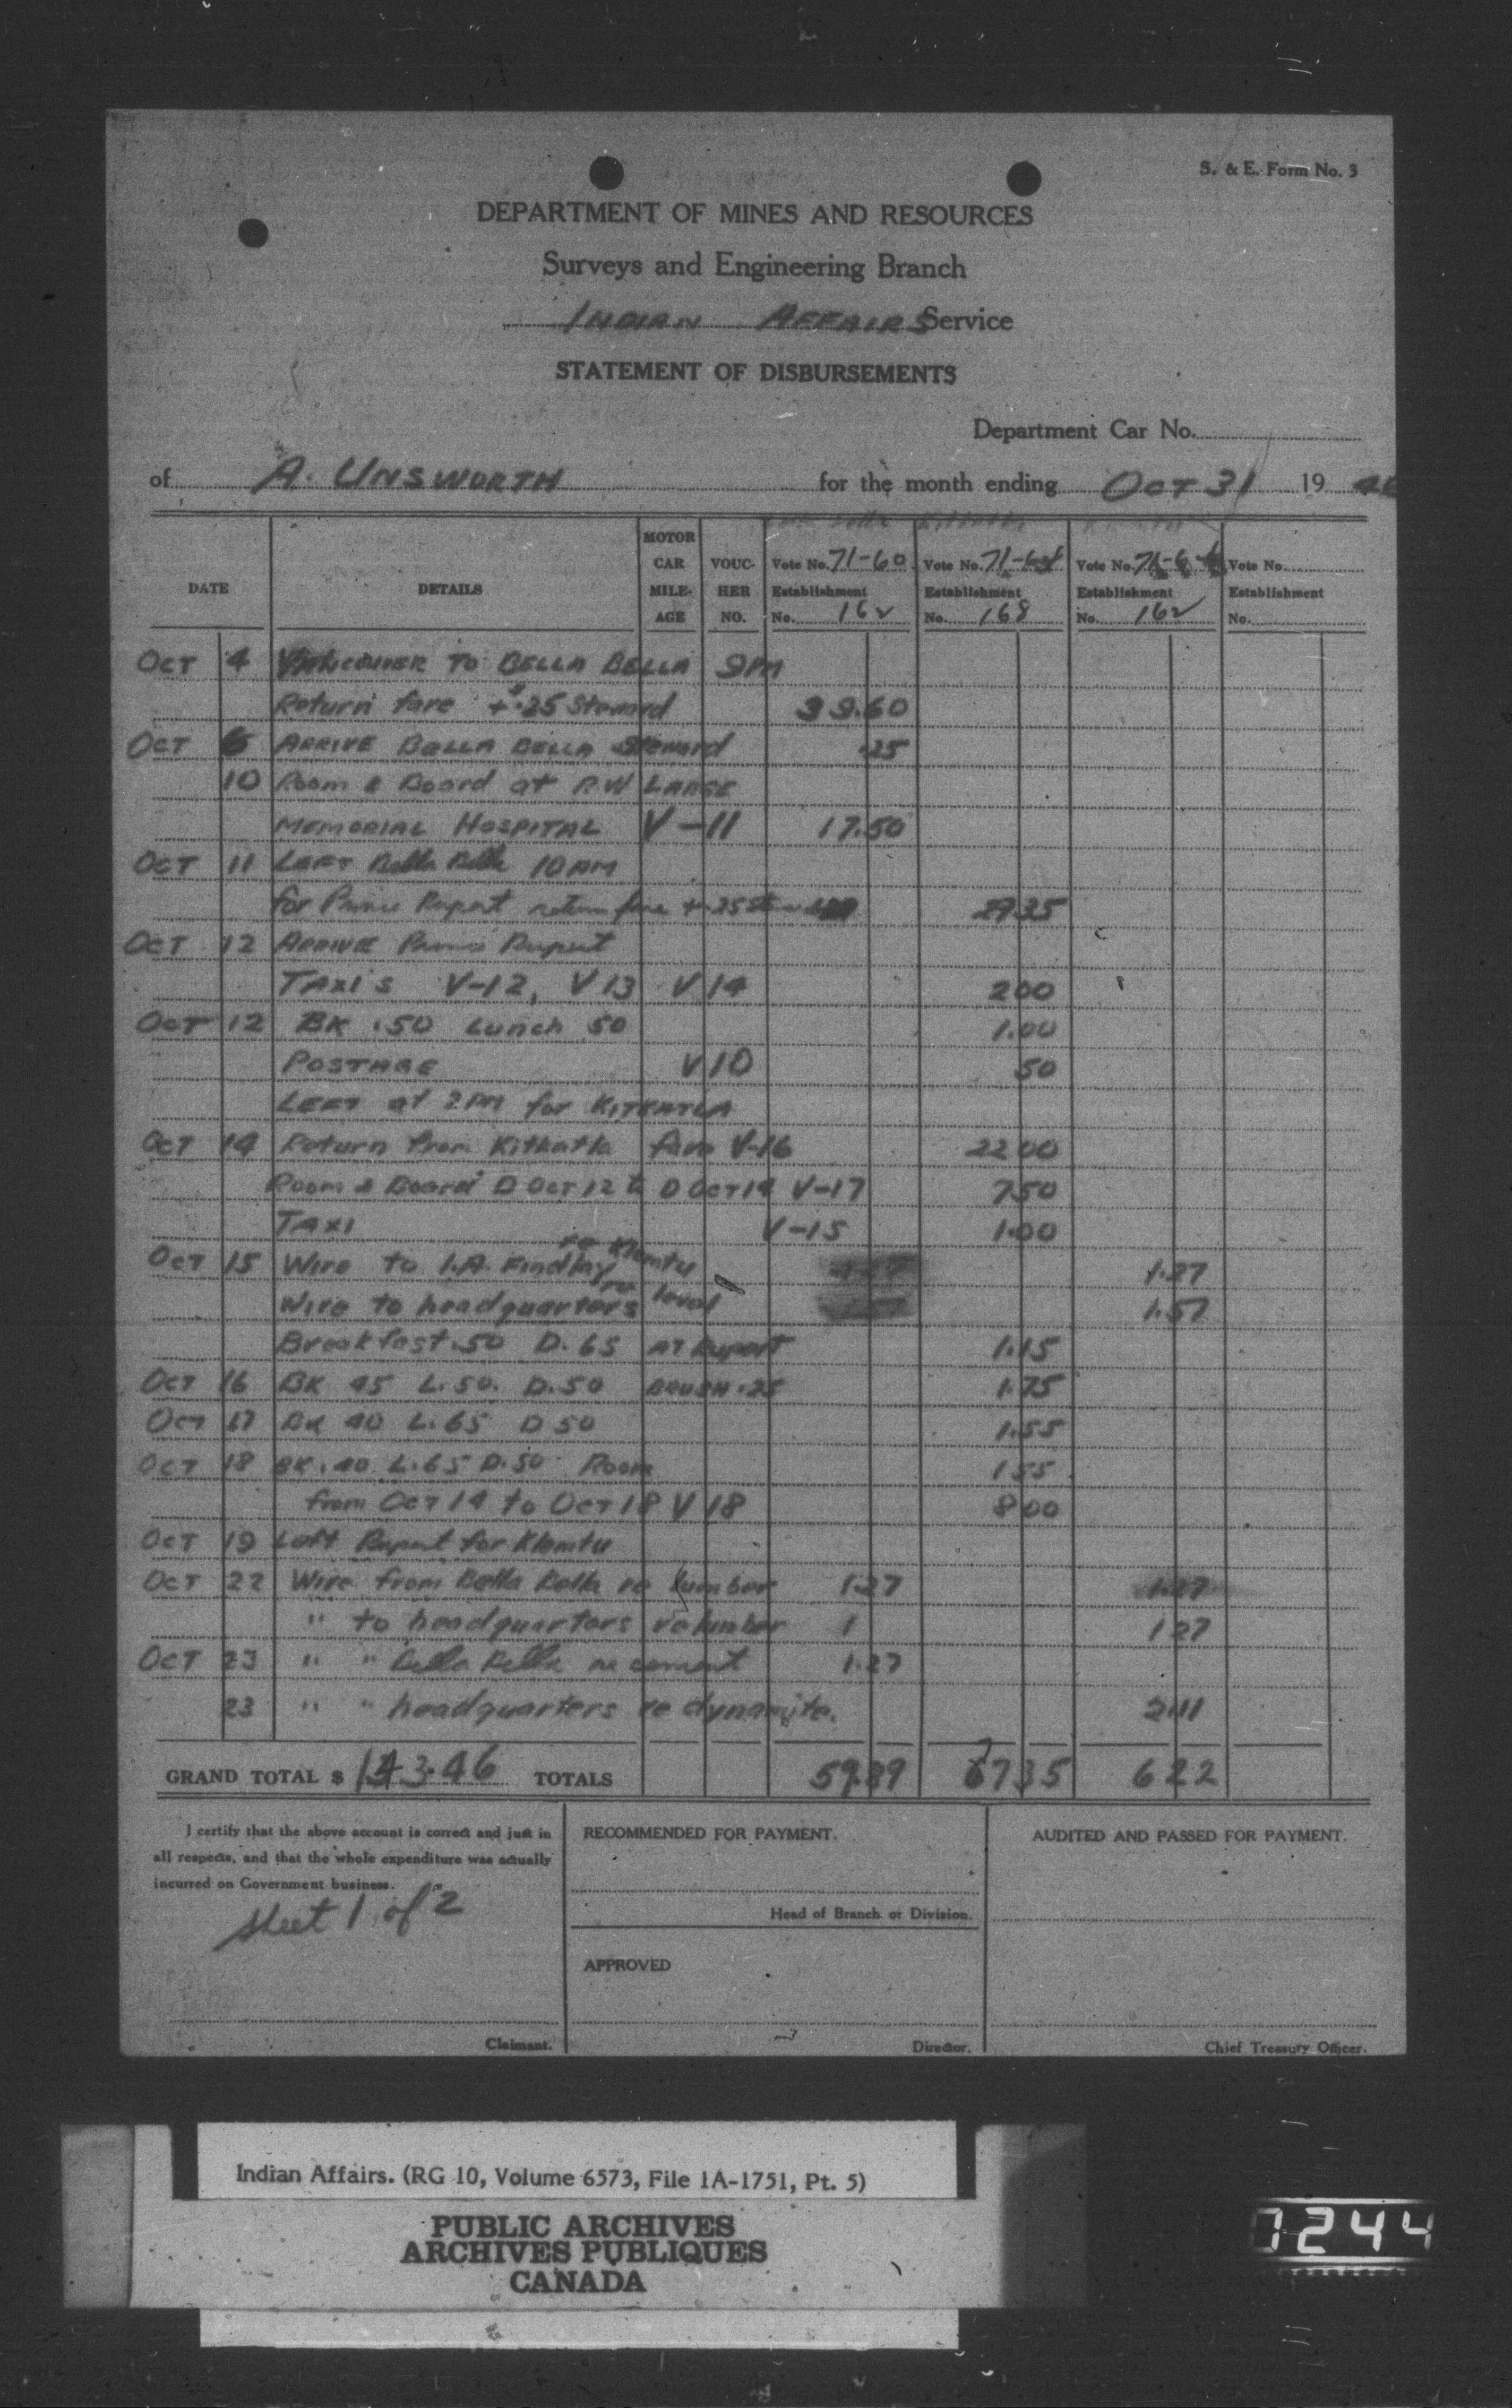 S. & E. Form No. 3
DEPARTMENT OF MINES AND RESOURCES
Surveys and Engineering Branch
INDIAN AFFAIRS Service
STATEMENT OF DISBURSEMENTS
Department Car No.
of A. UNSWORTH for the month ending OCT 31 19
DATE DETAILS MOTOR CAR MILE-AGE VOUC-HER NO. Vote No. 71-60 Establishment No. 162 Vote No. 71-64 Establishment No. 168 Vote No. Establishment No. 162 Vote No. Establishment No.
OCT 4 VANCOUVER TO BELLA BELLA 9PM
Return fare + .25 Steward 39.60
OCT 6 ARRIVE BELLA BELLA Steward .25
10 Room & Board at R W LARGE
MEMORIAL HOSPITAL V-11 17.50
OCT 11 LEFT Bella Bella 10 AM
for Prince Rupert return fare + .25 29 35
OCT 12 ARRIVE Prince Rupert
TAXI'S V-12, V 13 V 14 2 00
OCT 12 BK .50 Lunch 50 1.00
POSTAGE V 10 50
LEFT at 2 PM for KITKATLA
OCT 14 Return from Kitkatla fare V-16 22 00
Room & Board D OCT 12 to D OCT 14 V-17 7 50
TAXI V-15 1.00
OCT 15 Wire to I.A. Findlay re Klemtu 1.27
Wire to headquarters re level 1.57
Breakfast .50 D. 65 AT Rupert 1.15
OCT 16 BK 45 L. 50. D. 50 BRUSH .25 1.75
OCT 17 BK 40 L. 65 D 50 1.55
OCT 18 BK. 40 L. 65 D. 50 Room 1 55
from OCT 14 to OCT 18 V 18 8 00
OCT 19 Left Rupert for Klemtu
OCT 22 Wire from Bella Bella re lumber 1.27
" to headquarters re lumber 1 1 27
OCT 23 " " Bella Bella re cement 1.27
23 " " headquarters re dynamite. 2.11
GRAND TOTAL $ 143.46 TOTALS 59.89 77 35 6 22
I certify that the above account is correct and just in
all respects, and that the whole expenditure was actually
incurred on Government business.
sheet 1 of 2
Claimant.
RECOMMENDED FOR PAYMENT.
Head of Branch or Division.
APPROVED
Director.
AUDITED AND PASSED FOR PAYMENT.
Chief Treasury Officer.
Indian Affairs. (RG 10, Volume 6573, File 1A-1751, Pt. 5)
PUBLIC ARCHIVES
ARCHIVES PUBLIQUES
CANADA
7244